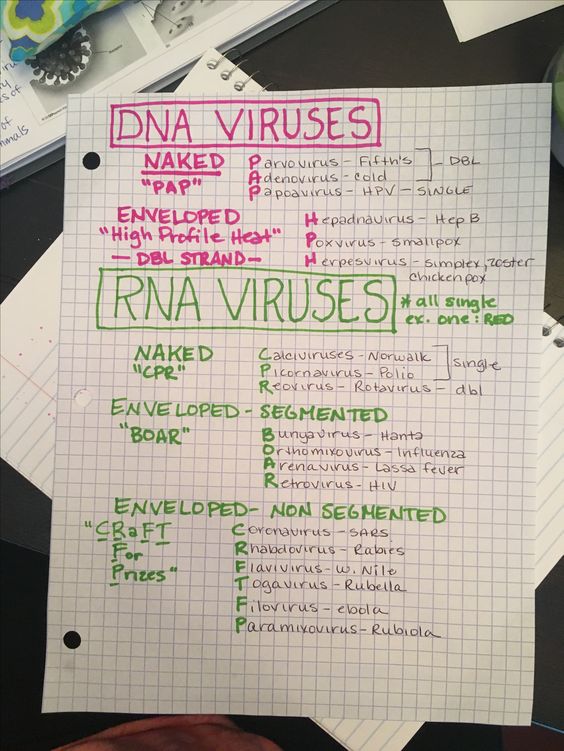 DNA VIRUSES
NAKED
"PAP"
Parvovirus - Fifth's
Adenovirus - cold
DBL
Papoavirus - HPV - SINGLE
ENVELOPED
"High Profile Heat"
- DBL STRAND -
Hepadnavirus - Hep B
Poxvirus - smallpox
Herpesvirus - simplex, zoster
chickenpox
RNA VIRUSES
* all single
ex. one: RED
NAKED
"CPR"
Calciviruses - Norwalk
Picornavirus - Polio
single
Reovirus - Rotavirus - dbl
ENVELOPED - SEGMENTED
"BOAR"
Bunyavirus - Hanta
Orthomixovirus - Influenza
Arenavirus - Lassa fever
Retrovirus - HIV
ENVELOPED - NON SEGMENTED
"CRaFT
For
Prizes"
Coronavirus - SARS
Rhabdovirus - Rabies
Flavivirus - W. Nile
Togavirus - Rubella
Filovirus - ebola
Paramixovirus - Rubiola
of
mmals